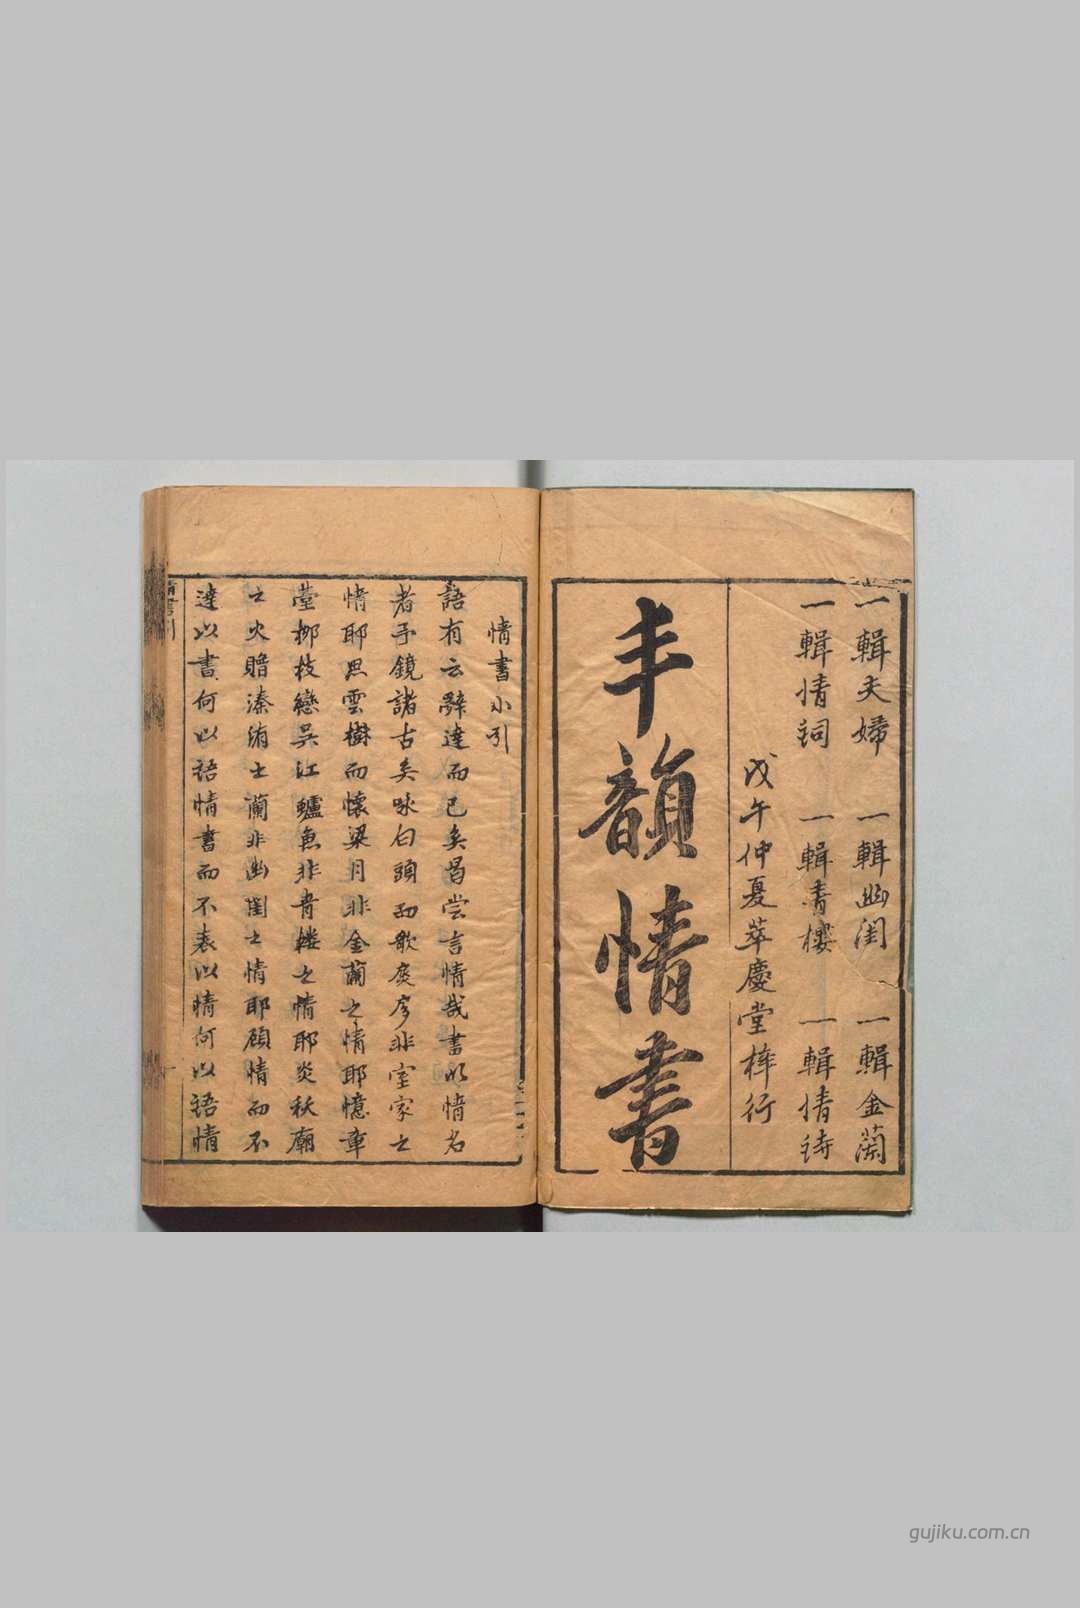 一輯夫婦 一輯幽閨 一輯金蘭
一輯情詞 一輯青樓 一輯情詩
戊午仲夏萃慶堂梓行
丰韻情書
情書小引
語有云辭達而已矣曷嘗言情哉書以情名
者予鏡諸古矣咏白頭而歌扊扅非室家之
情耶思雲樹而懷梁月非金蘭之情耶憶章
臺柳枝戀吳江鱸魚非青樓之情耶炎秋廟
之火贈溱洧士蘭非幽閨之情耶顧情而不
達以書何以語情書而不表以情何以語情
情書引
gujiku.com.cn